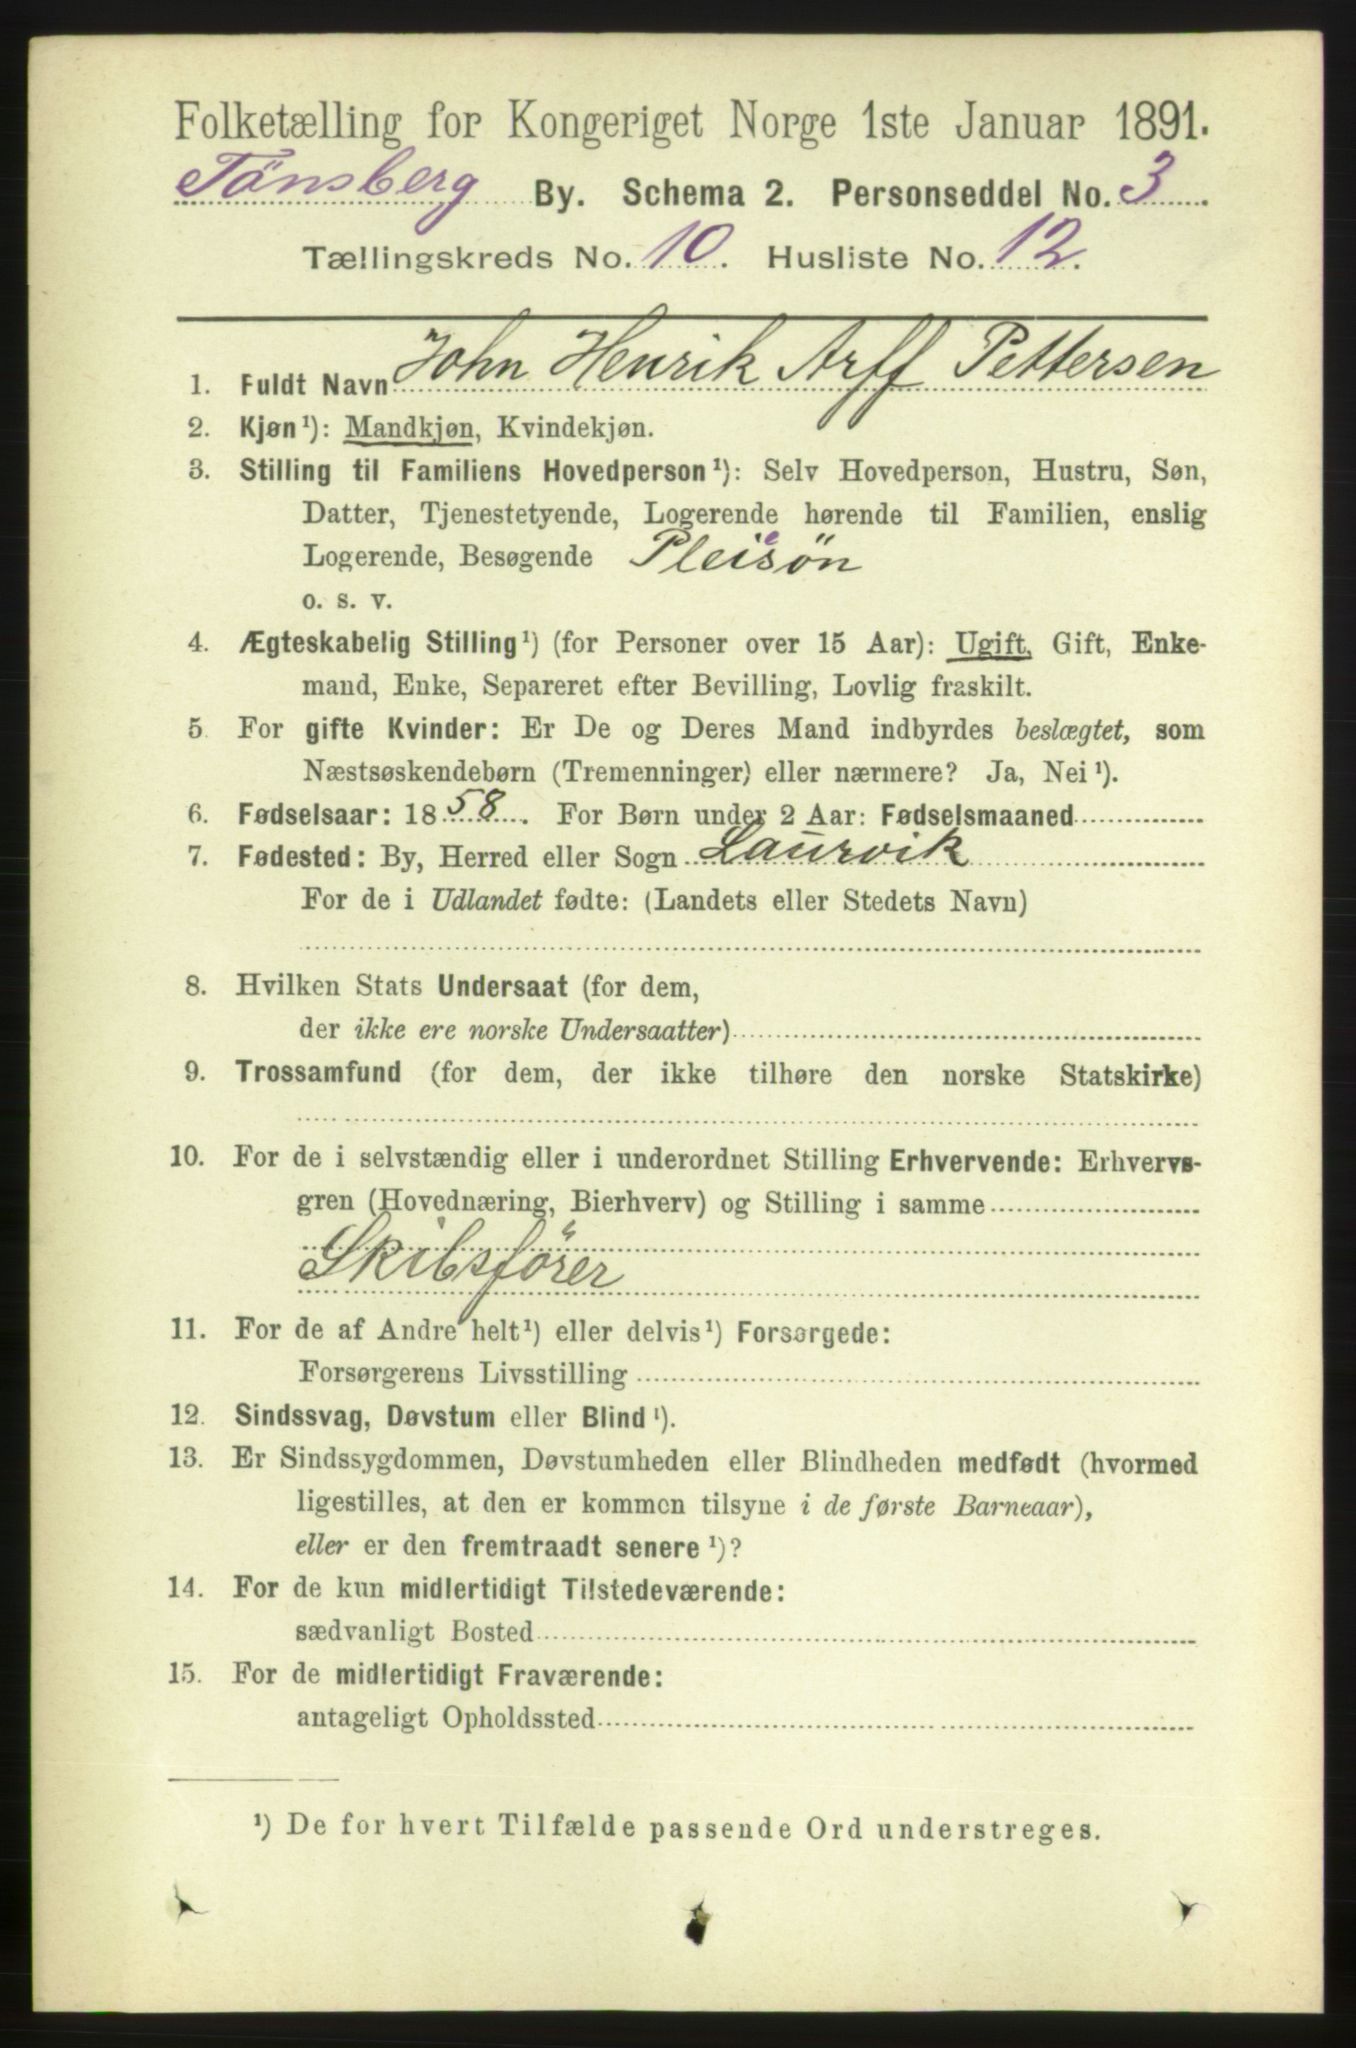 Folketælling for Kongeriget Norge 1ste Januar 1891.
Tönsberg By. Schema 2. Personseddel No. 3.
Tællingskreds No. 10. Husliste No. 12.
1. Fuldt Navn John Henrik Arff Pettersen
2. Kjøn¹): Mandkjøn, Kvindekjøn.
3. Stilling til Familiens Hovedperson¹): Selv Hovedperson, Hustru, Søn,
Datter, Tjenestetyende, Logerende hørende til Familien, enslig
Logerende, Besøgende Pleisøn
o. s. v.
4. Ægteskabelig Stilling¹) (for Personer over 15 Aar): Ugift, Gift, Enke-
mand, Enke, Separeret efter Bevilling, Lovlig fraskilt.
5 For gifte Kvinder: Er De og Deres Mand indbyrdes beslægtet, som
Næstsøskendebørn (Tremenninger) eller nærmere? Ja, Nei¹).
6. Fødselsaar: 1858. For Børn under 2 Aar: Fødselsmaaned
7. Fødested: By, Herred eller Sogn Laurvik
For de i Udlandet fødte: (Landets eller Stedets Navn)
8. Hvilken Stats Undersaat (for dem,
der ikke ere norske Undersaatter)
9. Trossamfund (for dem, der ikke tilhøre den norske Statskirke)
10. For de i selvstændig eller i underordnet Stilling Erhvervende: Erhvervs-
gren (Hovednæring, Bierhverv) og Stilling i samme
Skibsfører
11. For de af Andre helt¹) eller delvis¹) Forsørgede:
Forsørgerens Livsstilling
12. Sindssvag, Døvstum eller Blind¹).
13. Er Sindssygdommen, Døvstumheden eller Blindheden medfødt (hvormed
ligestilles, at den er kommen tilsyne i de første Barneaar),
eller er den fremtraadt senere¹)?
14. For de kun midlertidigt Tilstedeværende:
sædvanligt Bosted
15. For de midlertidigt Fraværende:
antageligt Opholdssted
¹) De for hvert Tilfælde passende Ord understreges.